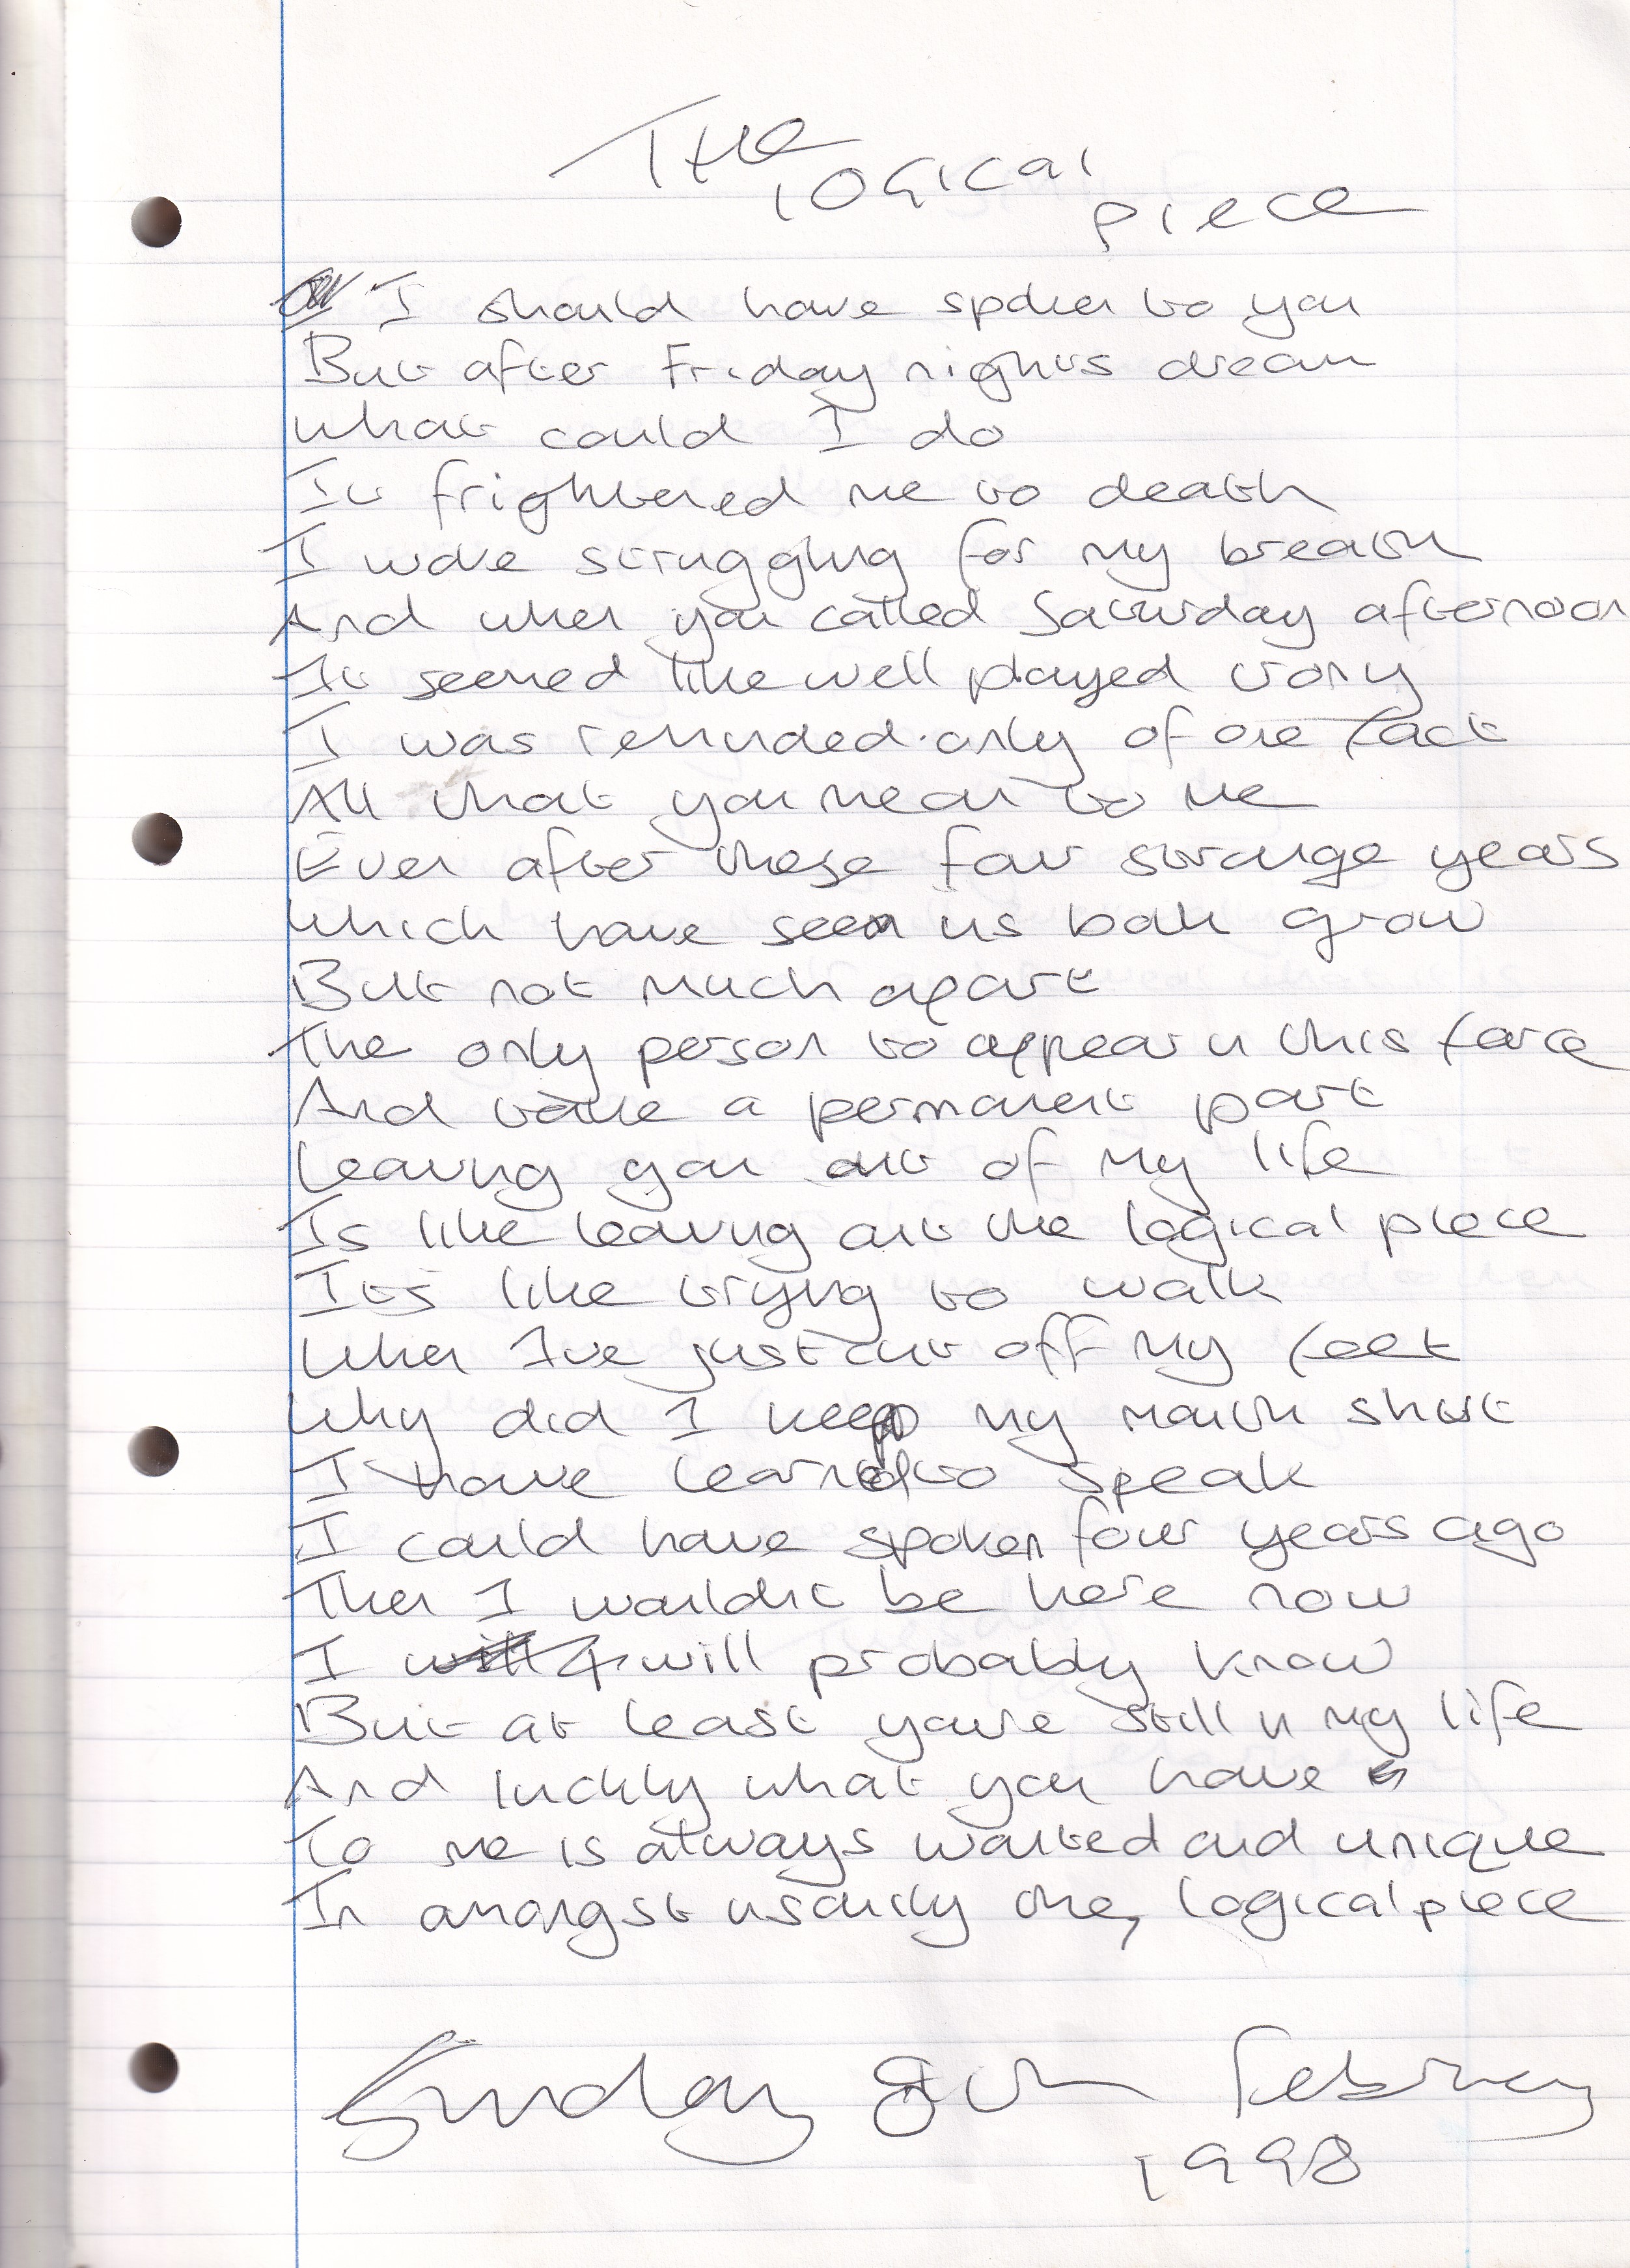 The
logical
piece
I should have spoken to you
But after Friday nights dream
What could I do
It frightened me to death
I woke struggling for my breath
And when you called Saturday afternoon
It seemed like well played irony
I was reminded only of one fact
All that you mean to me
Even after these four strange years
Which have seen us both grow
But not much apart
The only person to appear in this farce
And take a permanent part
Leaving you out of my life
Is like leaving out the logical piece
Its like trying to walk
When Ive just cut off my feet
Why did I keep my mouth shut
I have learned to speak
I could have spoken four years ago
Then I wouldnt be here now
I will probably know
But at least youre still in my life
And luckily what you have
To me is always wanted and unique
In amongst usually the, logical piece
Sunday 8th February
1998